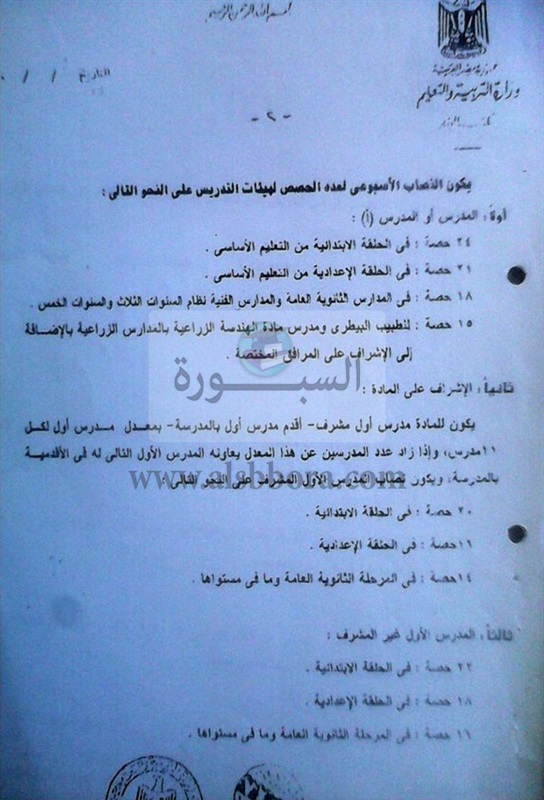 بسم الله الرحمن الرحيم
جمهورية مصر العربية
وزارة التربية والتعليم
التاريخ / /
- ٢ -
يكون النصاب الأسبوعى لعدد الحصص لهيئات التدريس على النحو التالى :
أولاً: المدرس أو المدرس (أ) :
٢٤ حصة : فى الحلقة الابتدائية من التعليم الأساسى .
٢١ حصة : فى الحلقة الإعدادية من التعليم الأساسى .
١٨ حصة : فى المدارس الثانوية العامة والمدارس الفنية نظام السنوات الثلاث والسنوات الخمس .
١٥ حصة : للطبيب البيطرى ومدرس مادة الهندسة الزراعية بالمدارس الزراعية بالإضافة
إلى الإشراف على المرافق المختصة .
السبورة
ثانياً: الإشراف على المادة :
يكون للمادة مدرس أول مشرف- أقدم مدرس أول بالمدرسة- بمعدل مدرس أول لكل
مدرس، وإذا زاد عدد المدرسين عن هذا المعدل يعاونه المدرس الأول التالى له فى الأقدمية
بالمدرسة، ويكون نصاب المدرس الأول المشرف على النحو التالى :
www.alsbbora.com
٢٠ حصة : فى الحلقة الابتدائية .
حصة : فى الحلقة الإعدادية .
١٤ حصة : فى المرحلة الثانوية العامة وما فى مستواها .
ثالثاً: المدرس الأول غير المشرف :
٢٢ حصة : فى الحلقة الابتدائية .
١٨ حصة : فى الحلقة الإعدادية .
حصة : فى المرحلة الثانوية العامة وما فى مستواها .